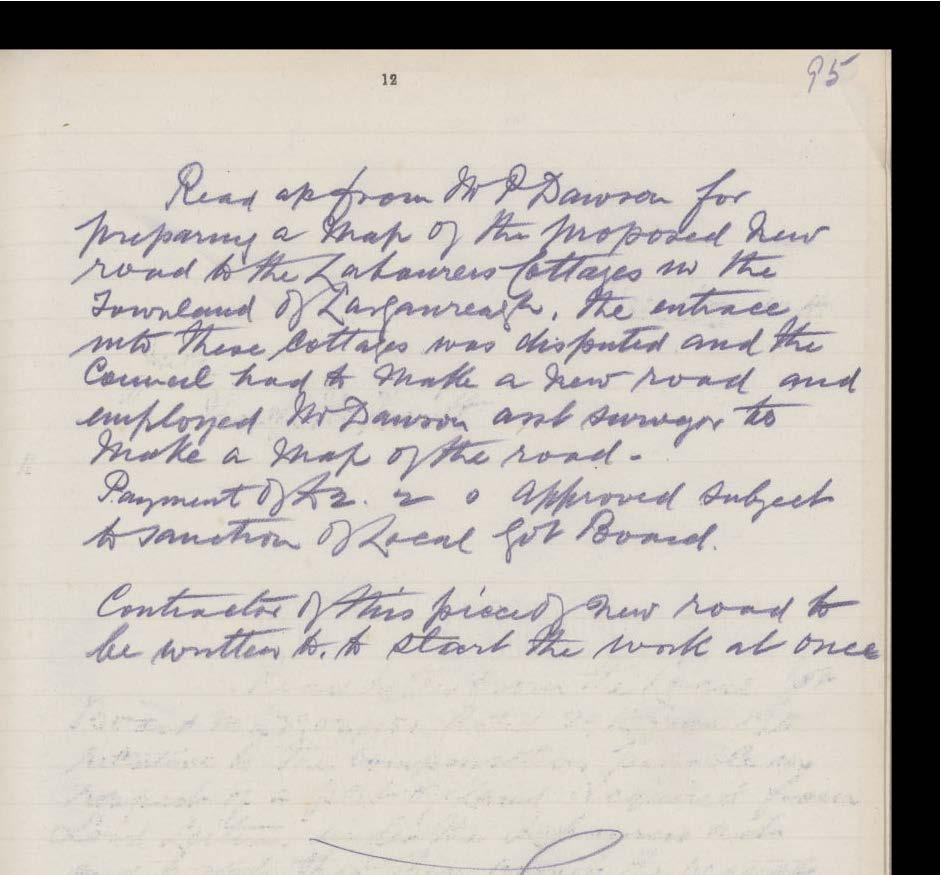 12
95
Read ap from Mr P Dawson for
preparing a Map of the proposed New
road to the Labourers Cottages in the
Townland of Larganreagh, the entrace
into these Cottages was disputed and the
Council had to Make a new road and
employed Mr Dawson asst surveyor to
Make a Map of the road -
Payment of £2. 2 0 approved subject
to sanction of Local Govt Board.
Contractor of this piece of new road to
be written to. to start the work at once